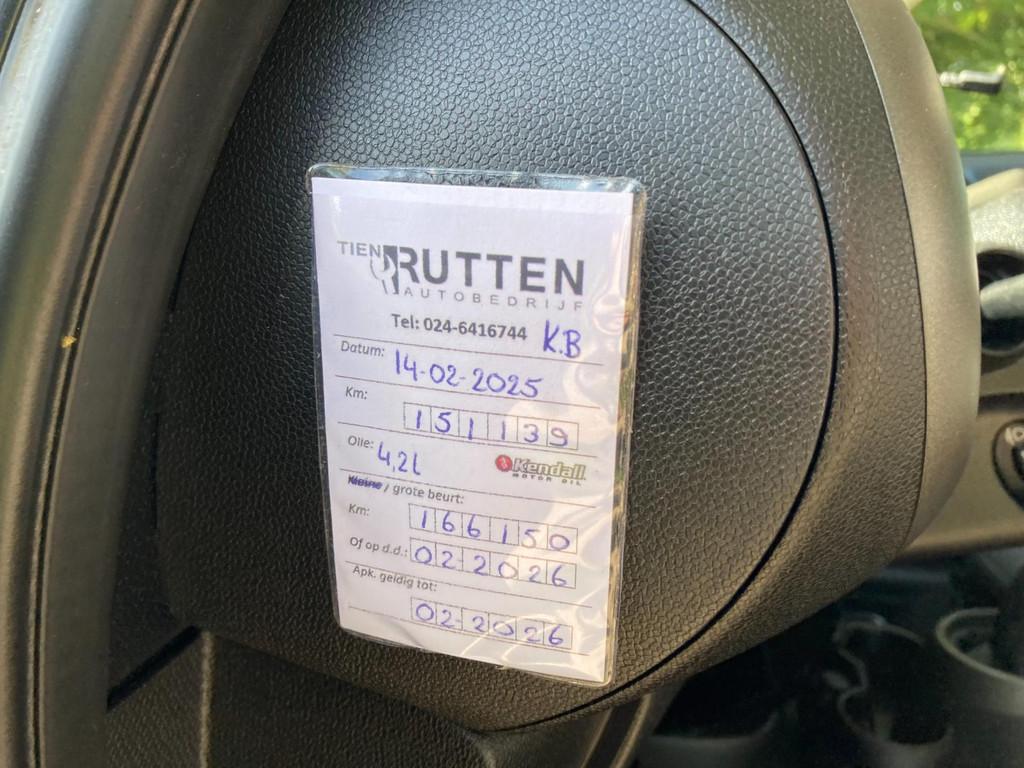 TIEN RUTTEN
AUTOBEDRIJF
Tel: 024-6416744 K.B
Datum: 14-02-2025
Km:
151139
Olie: 4,2L Kendall
MOTOR OIL
Kleine / grote beurt:
Km: 166150
Of op d.d.: 02-2026
Apk. geldig tot:
02-2026